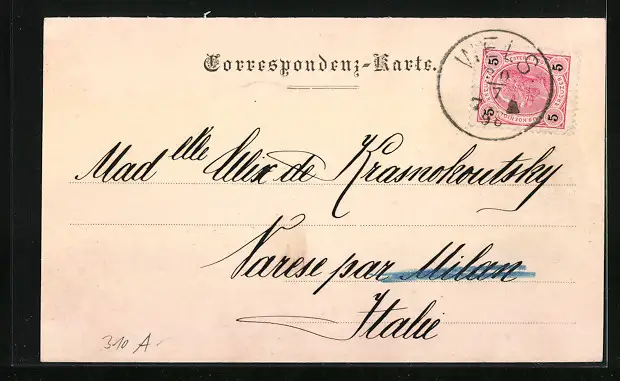 Correspondenz-Karte.
WELS
5 5
9
7
98
5 5
Mad elle Alix de Krasnokoutsky
Varese par Milan
Italie
310 A